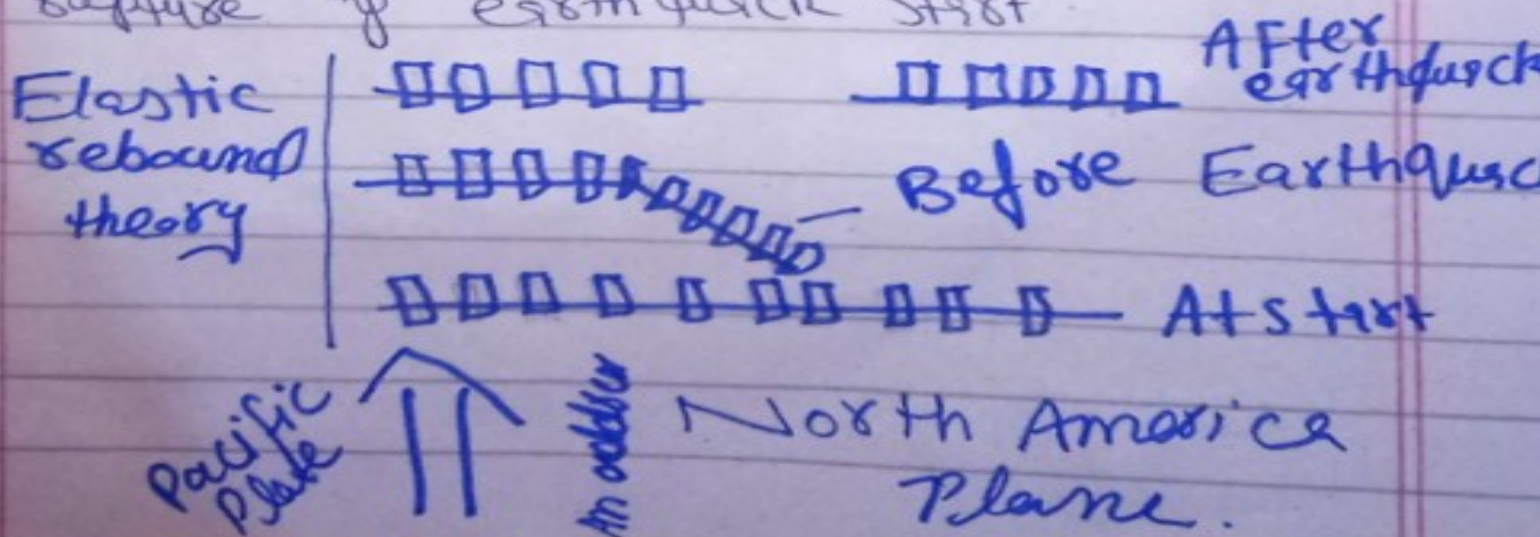 rupture of earthquick start
Elastic
rebound
theory
After
earthquack
Before Earthqusc
At start
Pacific
Plate
North America
Plane.